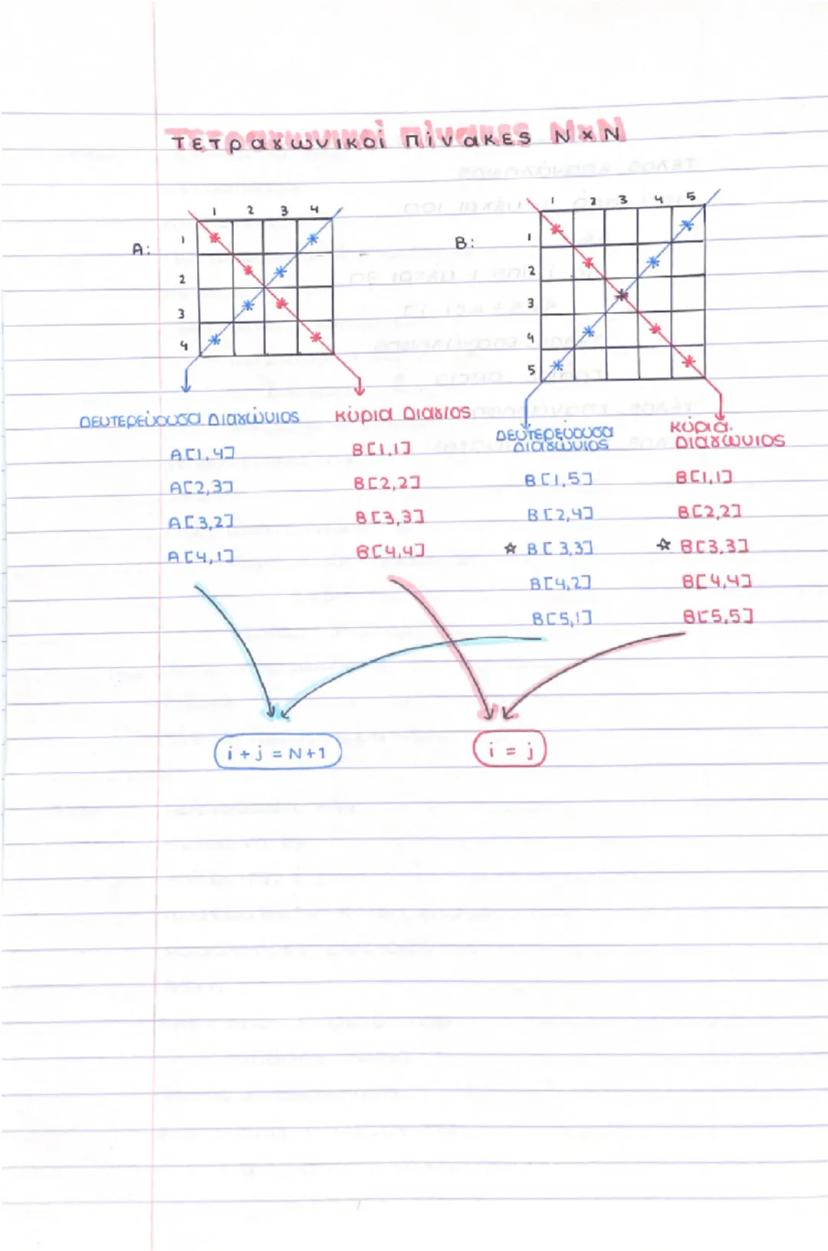 Τετραγωνικοί πίνακες ΝxΝ
1 2 3 4
Α:
1
2
3
4
1 2 3 4 5
Β:
1
2
3
4
5
Δευτερεύουσα Διαγώνιος
Α[1,4]
Α[2,3]
Α[3,2]
Α[4,1]
Κύρια Διαγιος
Β[1,1]
Β[2,2]
Β[3,3]
Β[4,4]
Δευτερεύουσα
Διαγώνιος
Β[1,5]
Β[2,4]
☆ Β[3,3]
Β[4,2]
Β[5,1]
Κύρια
Διαγώνιος
Β[1,1]
Β[2,2]
☆ Β[3,3]
Β[4,4]
Β[5,5]
i + j = N+1
i = j